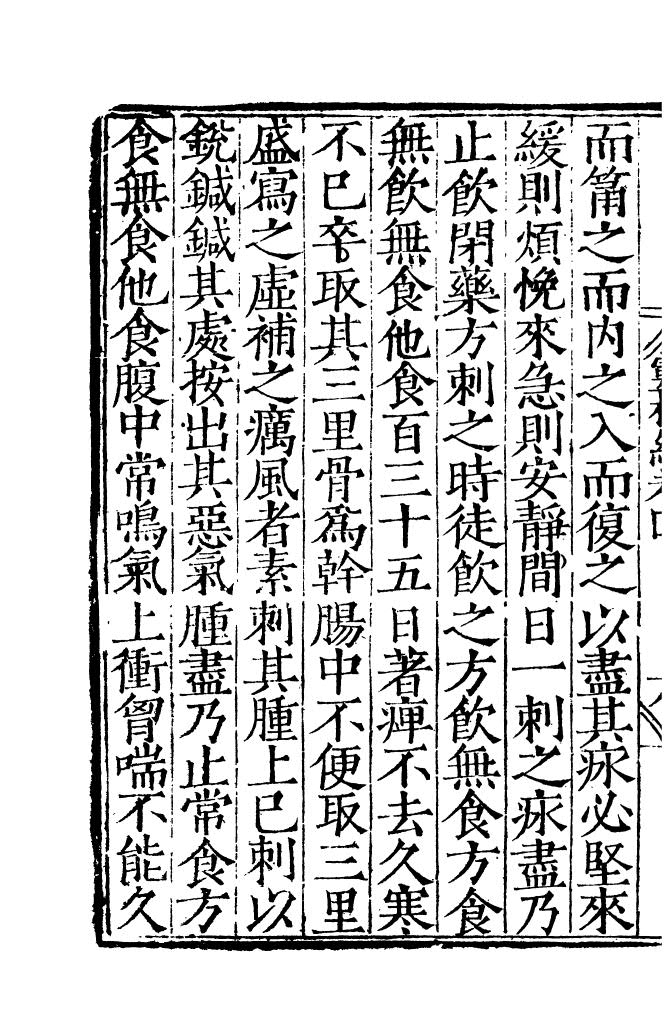 而筩之而内之入而復之以盡其㳈必堅來
緩則煩悗來急則安靜間日一刺之㳈盡乃
止飲閉藥方刺之時徒飲之方飲無食方食
無飲無食他食百三十五日著痺不去久寒
不已卒取其三里骨爲幹腸中不便取三里
盛寫之虛補之癘風者素刺其腫上已刺以
銳鍼鍼其處按出其惡氣腫盡乃止常食方
食無食他食腹中常鳴氣上衝胷喘不能久